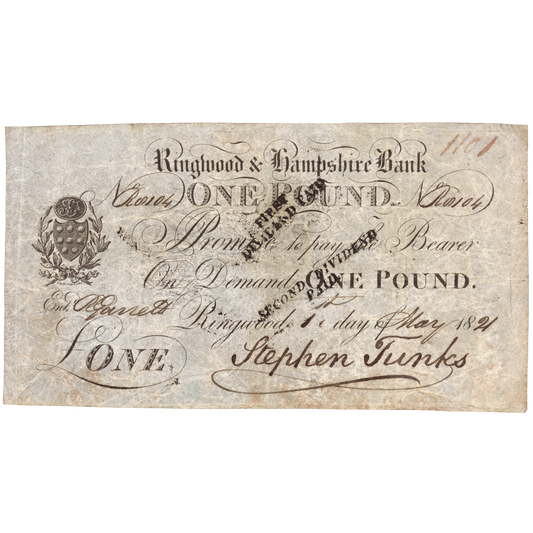 1101
Ringwood & Hampshire Bank
No 10104 ONE POUND. No 10104
I Promise to pay the Bearer
On Demand ONE POUND.
Ringwood 1st day of May 1821
Entd. R Garrett
£ ONE
Stephen Tunks
FIRST
DIVIDEND PAID
SECOND DIVIDEND
PAID